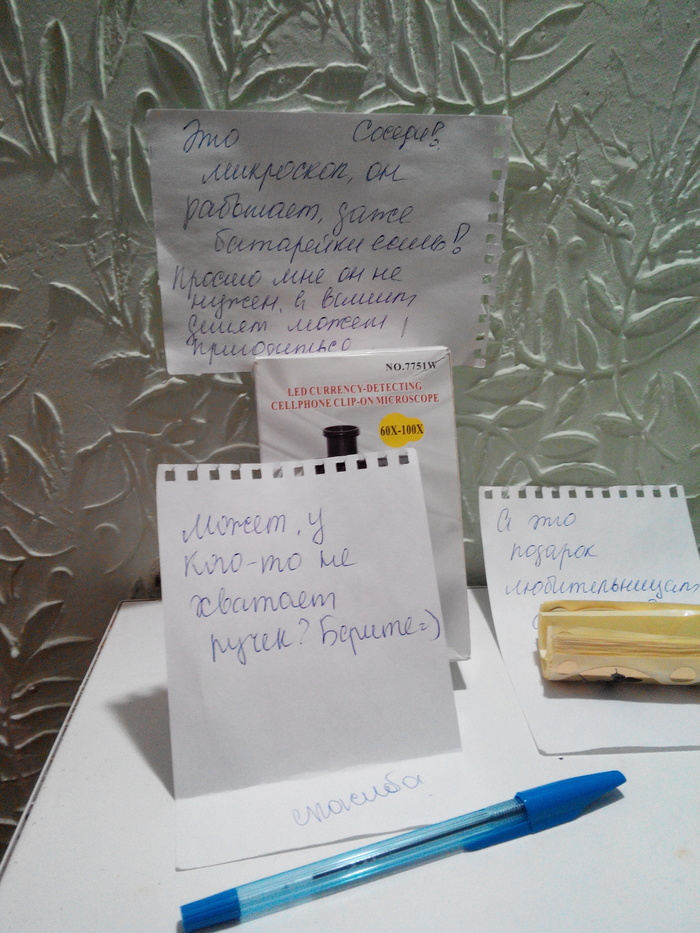 Это Соседи!
микроскоп, он
работает, даже
батарейки есть!
Просто мне он не
нужен, а вашим
детям может
пригодиться
NO.7751W
LED CURRENCY-DETECTING
CELLPHONE CLIP-ON MICROSCOPE
60X-100X
Может, у
кого-то не
хватает
ручек? Берите=)
спасибо
А это
подарок
любительницам